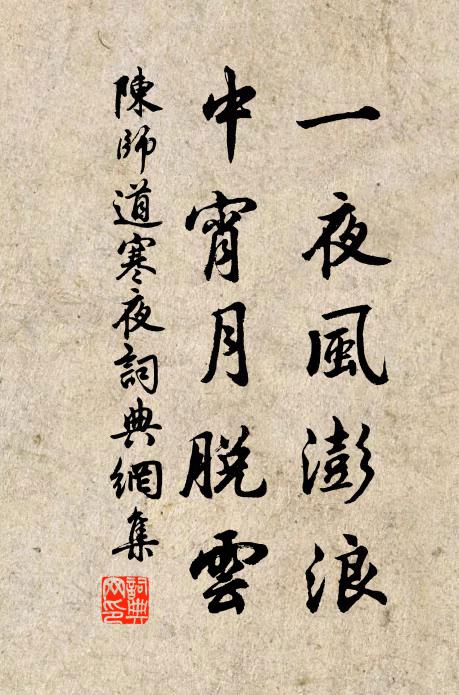 一夜風澎浪
中宵月脫雲
陳師道寒夜詞典網集
詞典網印